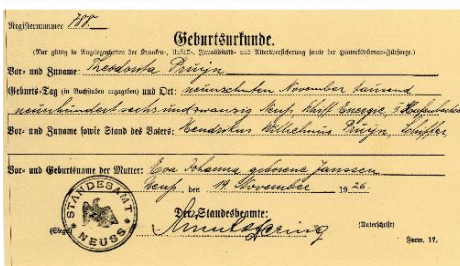 Registernummer 788
Geburtsurkunde.
(Nur gültig in Angelegenheiten der Kranken-, Unfall-, Invaliditäts- und Altersversicherung sowie der Hinterbliebenen-Fürsorge.)
Vor- und Zuname: Theodonta Pruijn
Geburts-Tag (in Buchstaben angegeben) und Ort: neunzehnten November tausend
neunhundert sechs und zwanzig Neuß, Schiff Energie, Hafenbecken
Vor- und Zuname sowie Stand des Vaters: Hendrikus Wilhelmus Pruijn, Schiffer
Vor- und Geburtsname der Mutter: Eva Johanna geborene Janssen
Neuß, den 19 November 1926.
Der Standesbeamte:
(Siegel)
(Unterschrift)
Form. 17.
STANDESAMT NEUSS